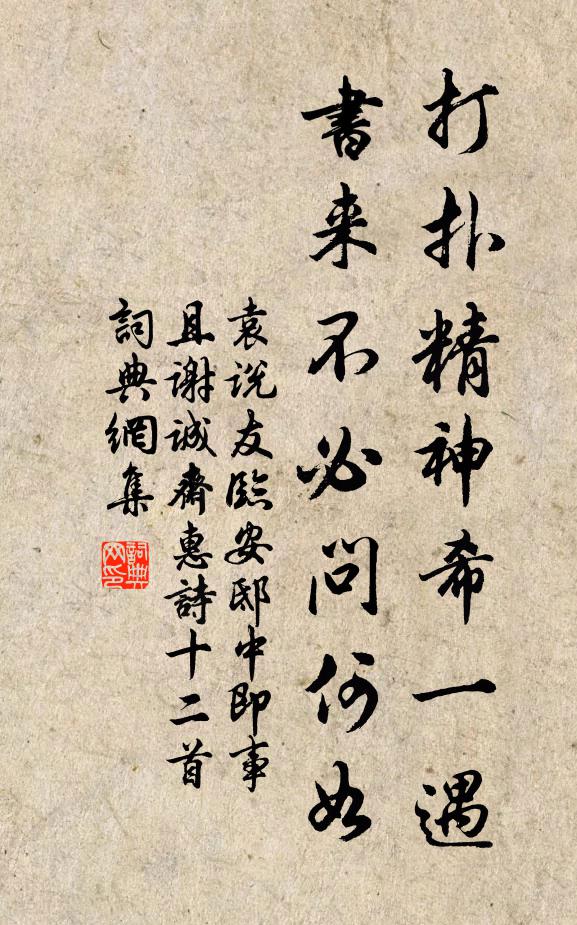 打扑精神希一遇
書来不必問何如
袁説友臨安邸中即事
且謝誠齋惠詩十二首
詞典網集
詞典
网印